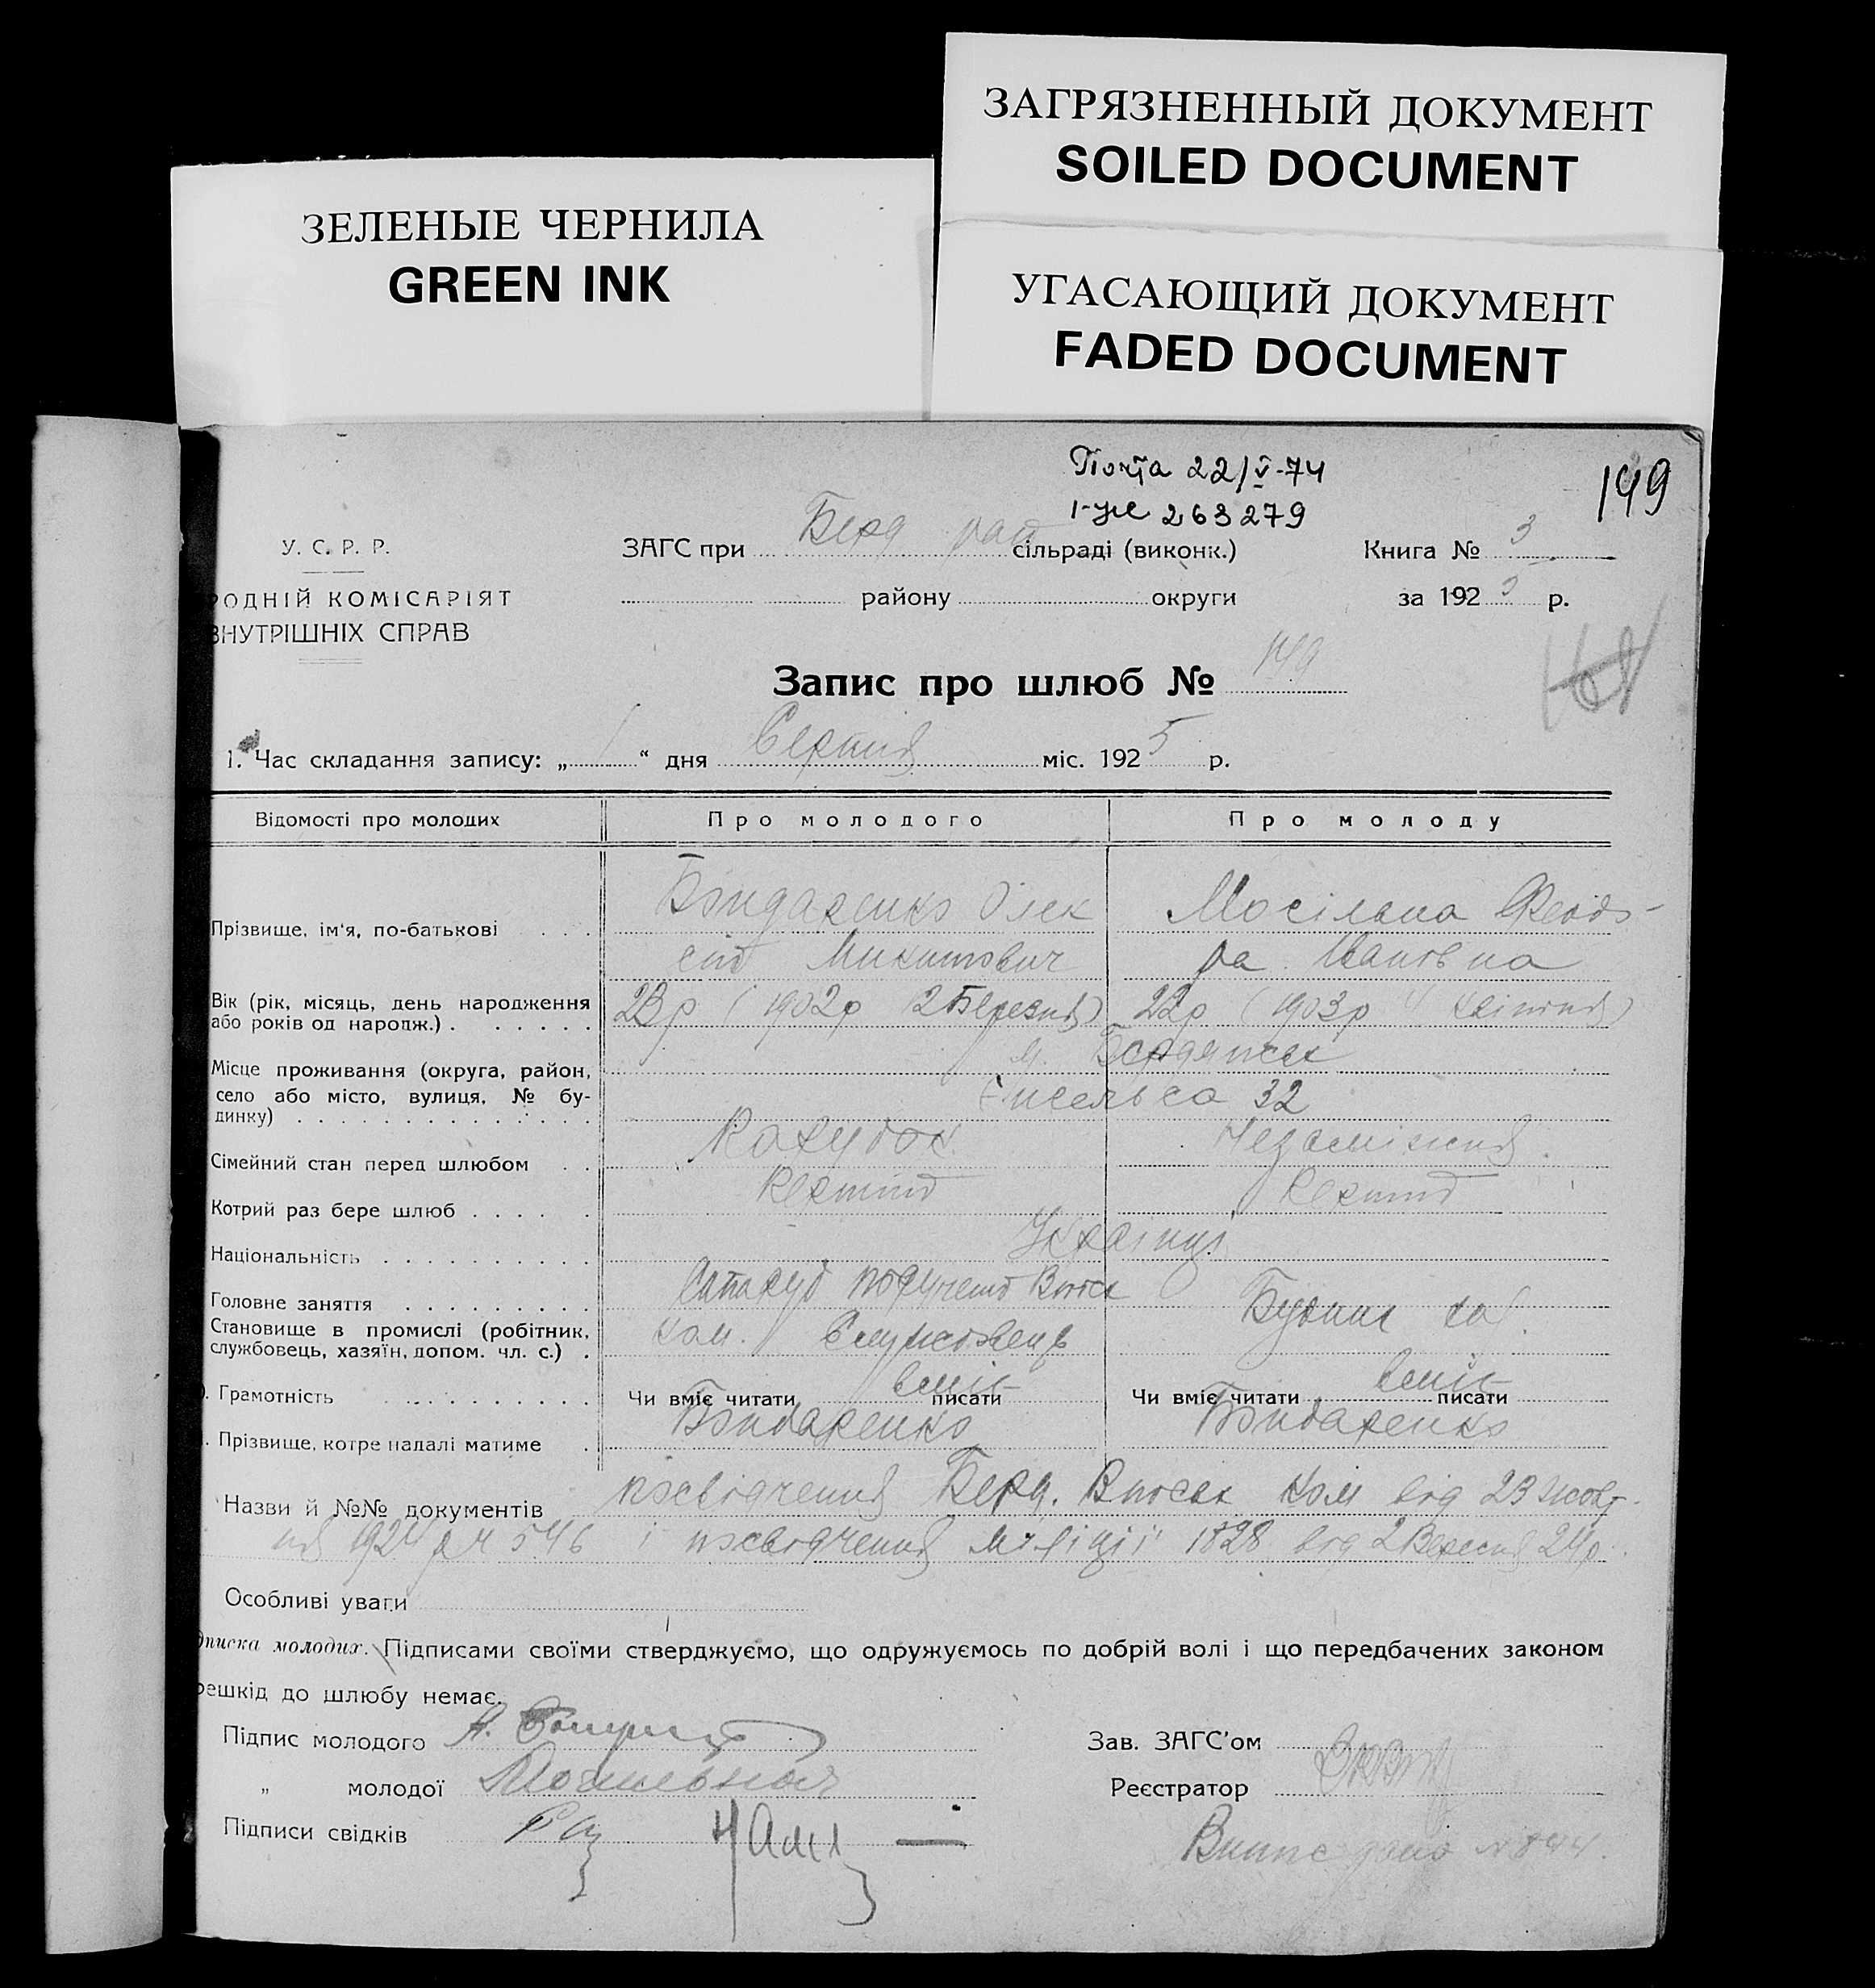 ЗАГРЯЗНЕННЫЙ ДОКУМЕНТ
SOILED DOCUMENT
ЗЕЛЕНЫЕ ЧЕРНИЛА
GREEN INK
УГАСАЮЩИЙ ДОКУМЕНТ
FADED DOCUMENT
Почта 22/V-74
263279
149
У. С. Р. Р.
РОДНІЙ КОМІСАРІЯТ
ВНУТРІШНІХ СПРАВ
ЗАГС при Берд рай сільраді (виконк.)
району округи
Книга № 3
за 1925 р.
Запис про шлюб № 149
1. Час складання запису: „ 1 “ дня Серпня міс. 1925 р.
Відомості про молодих Про молодого Про молоду
Прізвище, ім'я, по-батькові . . .
Бондаренко Олек
сій Микитович
Феодо-
ра Івановна
Вік (рік, місяць, день народження
або років од народж.) . . . . . .
23 р (1902 р 2 Березня) 22 р (1903 р 4 Квітня)
Місце проживання (округа, район,
село або місто, вулиця, № бу-
динку) . . . . . . . . . . . . . .
м. Бердянськ
Енгельса 32
Сімейний стан перед шлюбом . .
Парубок Незаміжня
Котрий раз бере шлюб . . . . .
Перший Перший
Національність . . . . . . . . . .
Українці
Головне заняття . . . . . . . . .
Становище в промислі (робітник,
службовець, хазяїн, допом. чл. с.) .
ком. Службовець
Грамотність . . . . . . . . . .
Чи вміє читати вміє писати Чи вміє читати вміє писати
Прізвище, котре надалі матиме .
Бондаренко Бондаренко
Назви й №№ документів посвідчення Берд. Воєн Ком від 23 жовт-
ня 1924 р № 546 і посвідчення Міліції 1828 від 2 Вересня 24 р.
Особливі уваги
дписка молодих. Підписами своїми стверджуємо, що одружуємось по добрій волі і що передбачених законом
решкід до шлюбу немає.
Підпис молодого
„ молодої
Підписи свідків
Зав. ЗАГС'ом
Реєстратор